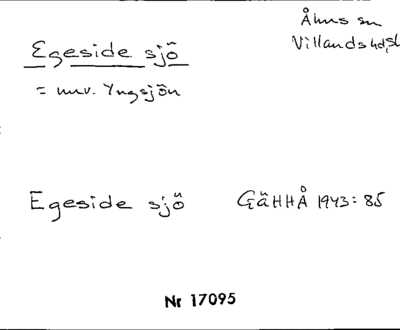 Åhus sn
Villands hd, Sk
Egeside sjö
= nuv. Yngsjön
Egeside sjö GäHHÅ 1943: 85
Nr 17095